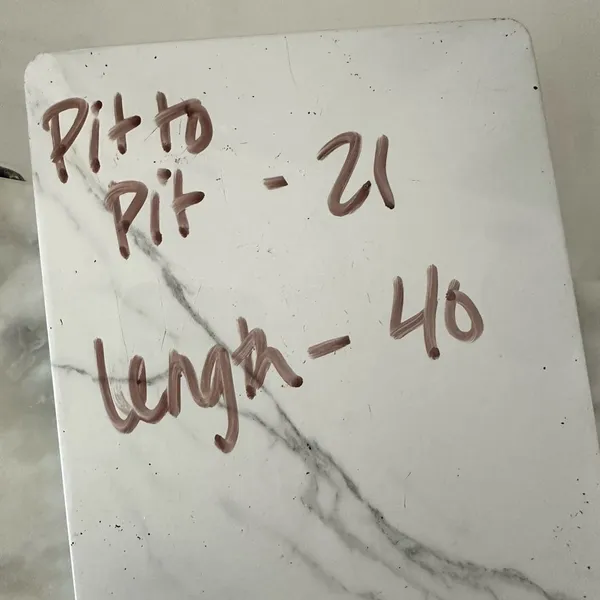 Pit to
Pit - 21
Lengh - 40